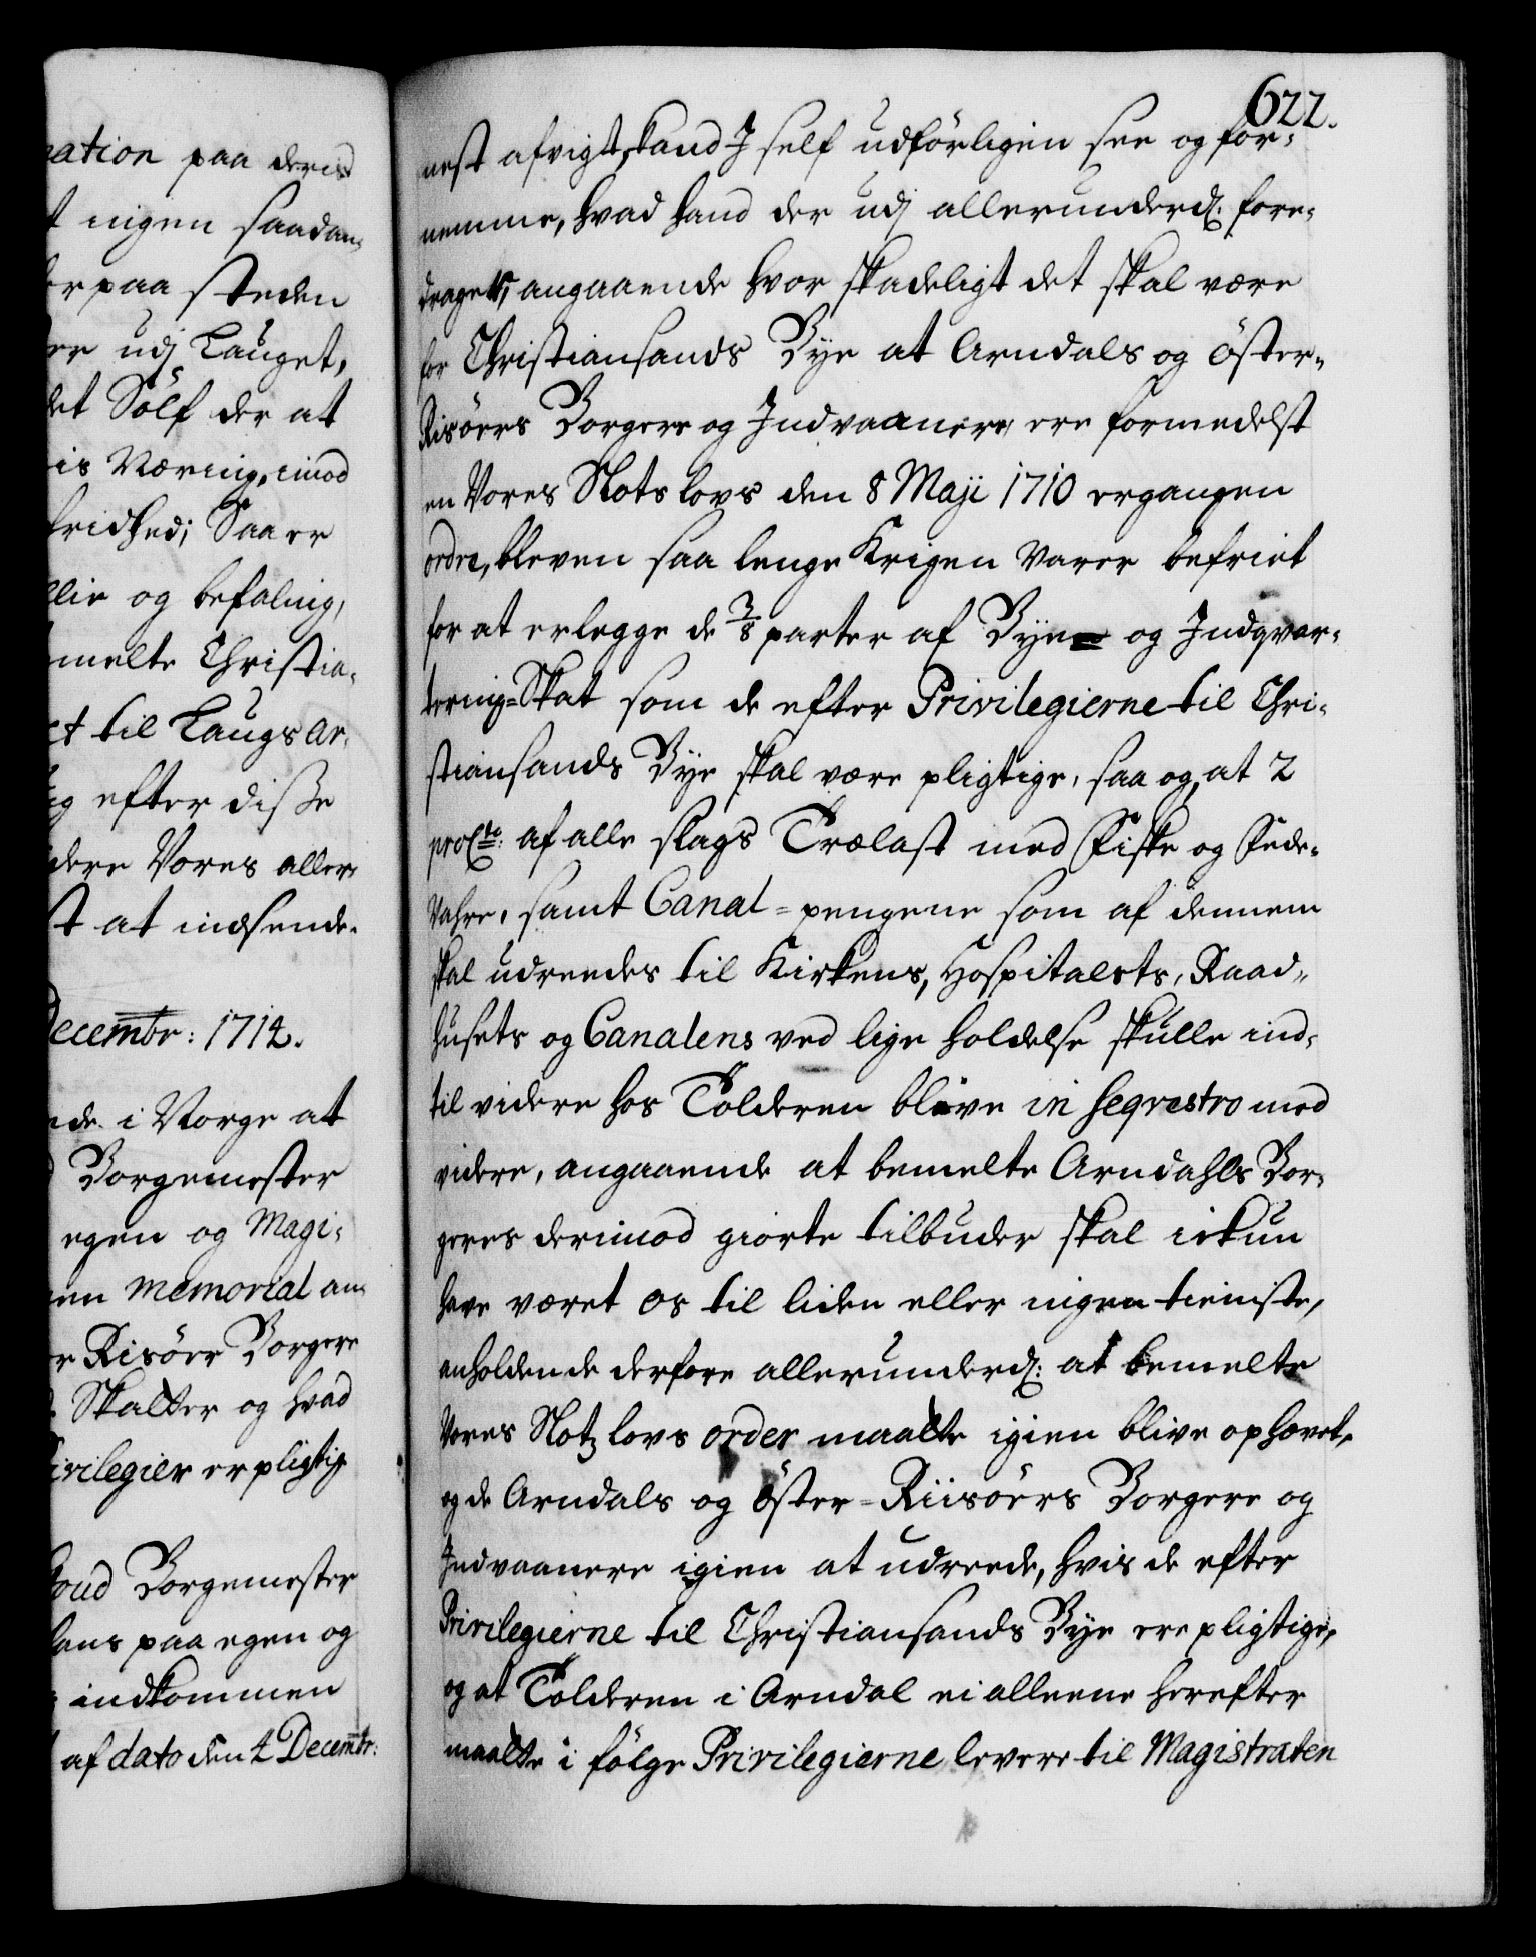 ration paa deris
t nigen saadan,
er paa steden
er udj Lauget,
det Sölf der at
is Næring, imod
fridhed; Saa er
llie og befaling,
melte Christia-
et til Laugs Ar-
ig efter disse
dere Vores aller-
st at indsende.
Decembr: 1714.
nde i Norge at
Borgemester
egen og Magi-
en memorial an-
er Risöer Borgere
Skatter og hvad
Privilegier er pligtig
Borgemester
hans paa egen og
indkommen
af dato den 4 Decembr:
622.
nest afvigt, kand J self udförligen see og for-
nemme, hvad hand der udj allerunderd: fore-
drager, angaaende hvor skadeligt det skal være
for Christiansands Bye at Arndals og Öster-
Risöers Borgere og Indvaanere, ere formedelst
en Vores Slots lovs den 8 Maji 1710 ergangen
ordre, bleven saa lenge Krigen varer befriet
for at erlegge de 3/8 parter af Bye- og Indqvar-
tering-Skat som de efter Privilegierne til Chri-
stiansands Bye skal være pligtige, saa og, at 2
pro Cto: af alle slags Trælast med Fiske og Fede-
Vahre, samt Canal-pengene som af dennem
skal udreedes til Kirkens, Hospitalets, Raad-
husets og Canalens ved lige holdelse skulle ind-
til videre hos Tolderen blive in seqvestro med
videre, angaaende at bemelte Arndahls Bor-
geres derimod giorte tilbuder skal ickun
have været os til liden eller ingen tieniste,
anholdende derfore allerunderd: at bemelte
Vores Slotz lovs order maatte igien blive ophævet,
og de Arndals og Öster-Riisöers Borgere og
Indvaanere igien at udreede, hvis de efter
Privilegierne til Christiansands Bye ere pligtige,
og at Tolderen i Arndal ei alleene herefter
maatte i fölge Privilegierne levere til Magistraten